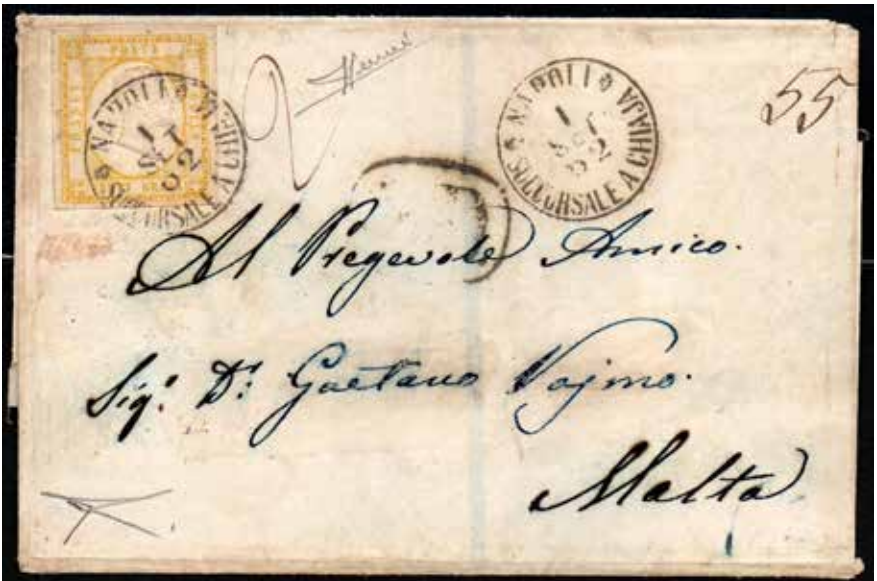 POSTA
NAPOLI
1
SET
62
SUCCURSALE A CHIAJA
2
NAPOLI
1
SET
62
SUCCURSALE A CHIAJA
55
Al Pregevole Amico.
Sigr. Dr. Gaetano
Malta